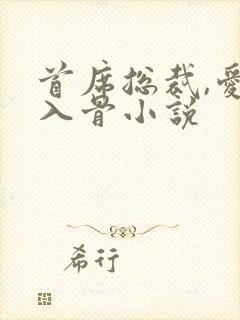 首席总裁,愛
入骨小說
希行